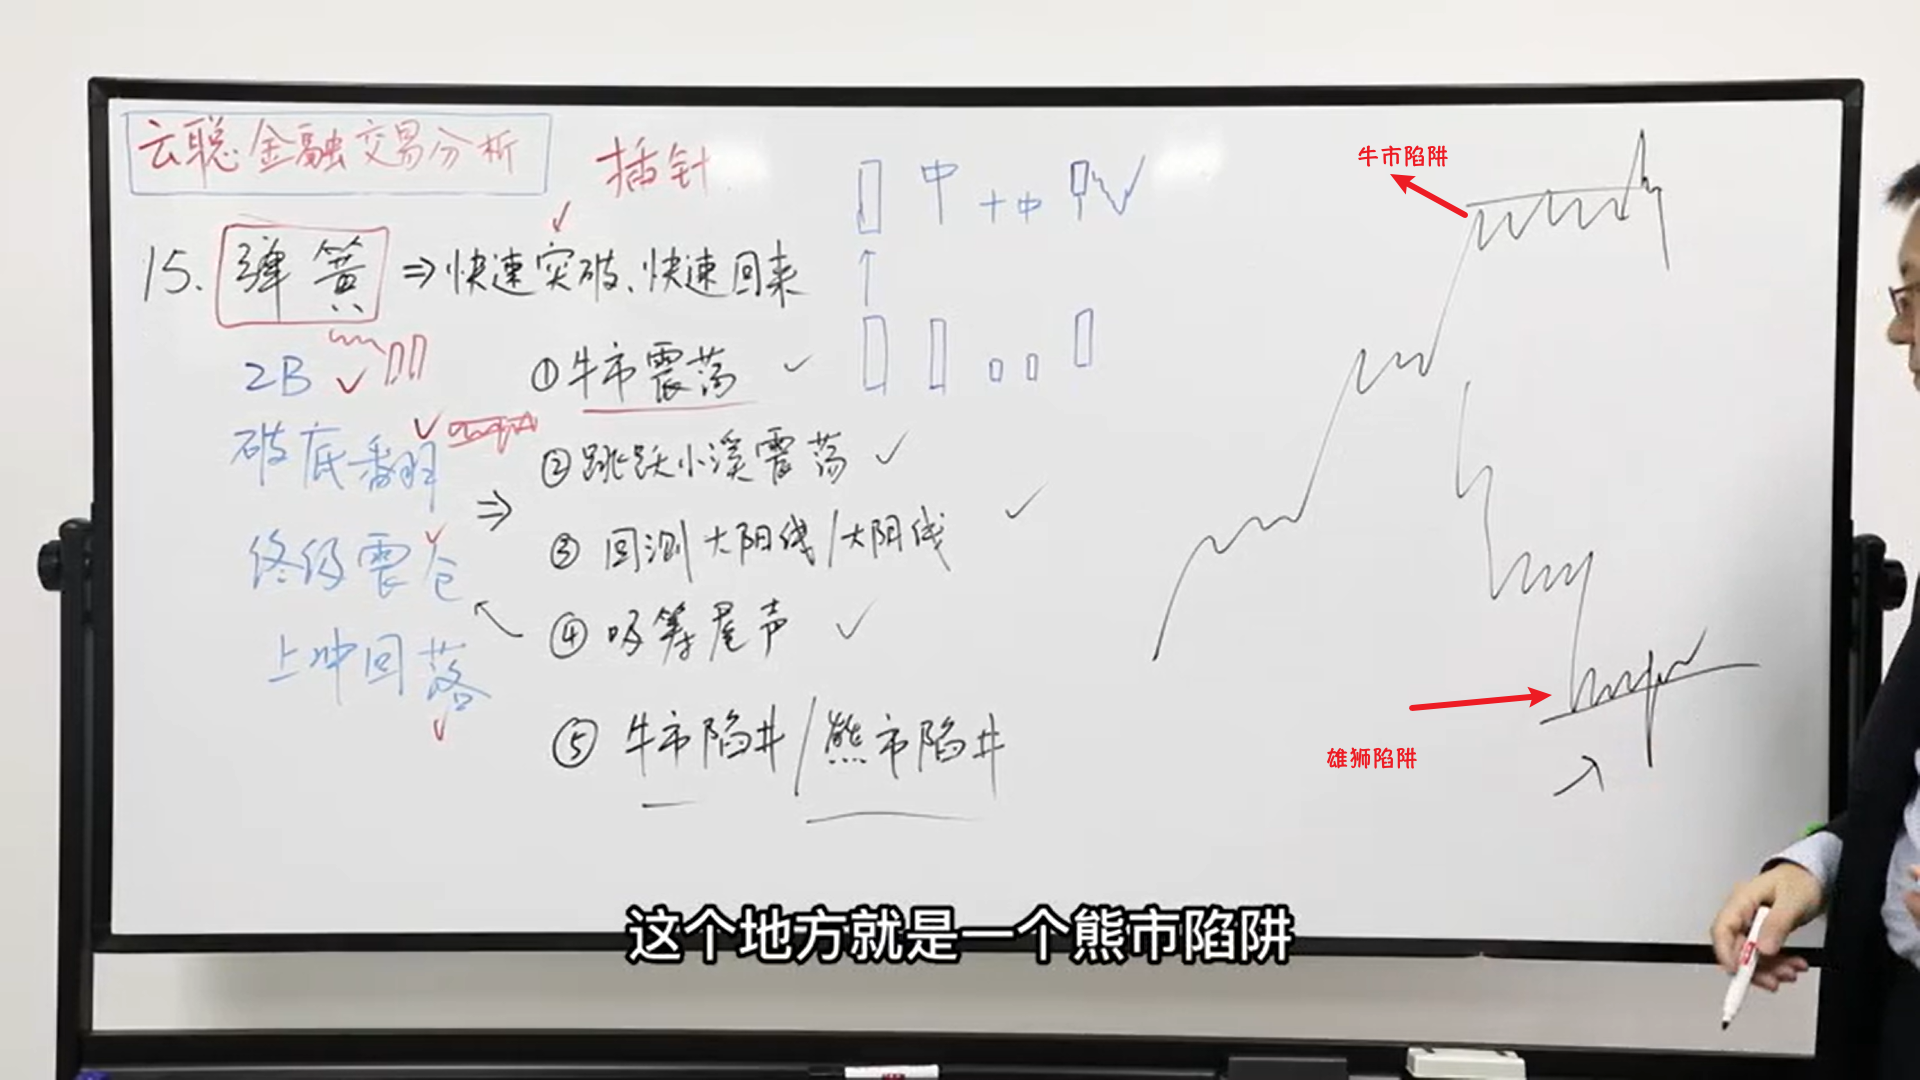 云聪金融交易分析
插针
15. 弹簧 ⇒ 快速突破、快速回来
2B
破底翻
终级震仓
上冲回落
①牛市震荡
②跳跃小溪震荡
③回测大阳线/大阴线
④吸筹尾声
⑤牛市陷井/熊市陷井
牛市陷阱
雄狮陷阱
这个地方就是一个熊市陷阱